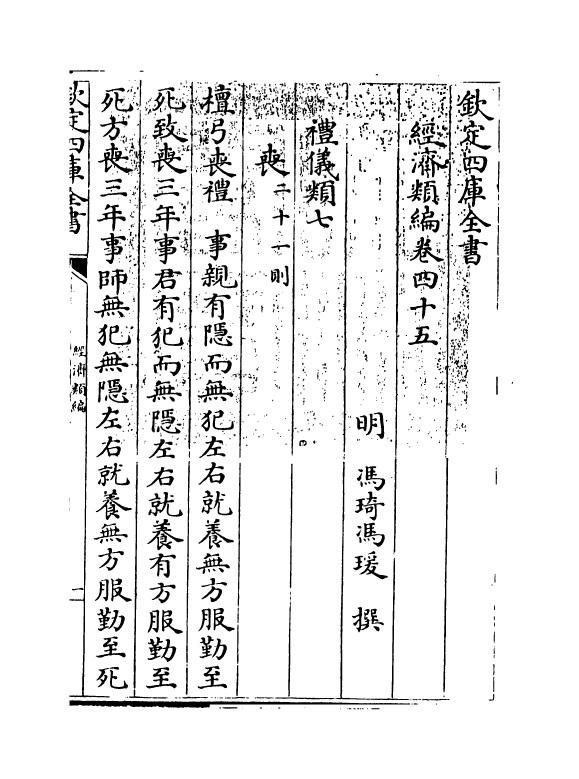 欽定四庫全書
經濟類編卷四十五
明 馮琦馮瑗 撰
禮儀類七
喪二十一則
檀弓喪禮 事親有隱而無犯左右就養無方服勤至
死致喪三年事君有犯而無隱左右就養有方服勤至
死方喪三年事師無犯無隱左右就養無方服勤至死
欽定四庫全書
經濟類編
一